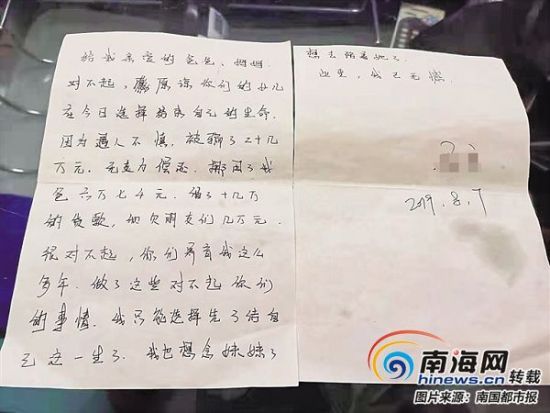 给我亲爱的爸爸、妈妈
对不起,原谅你们的女儿
在今日选择结束自己的生命
因为遇人不慎,被骗了二十几
万元.无力偿还.挪用了我
爸六万七千元.借了十几万
的贷款,
欠朋友们几万元.
很对不起,你们养育我这么
多年.做了这些对不起你们
的事情.我只能选择先了结自
己这一生了.我也想念妹妹了
想去陪着她了
这里,我已无
2019.8.7
南海网
hinews.cn 转载
图片来源:南国都市报